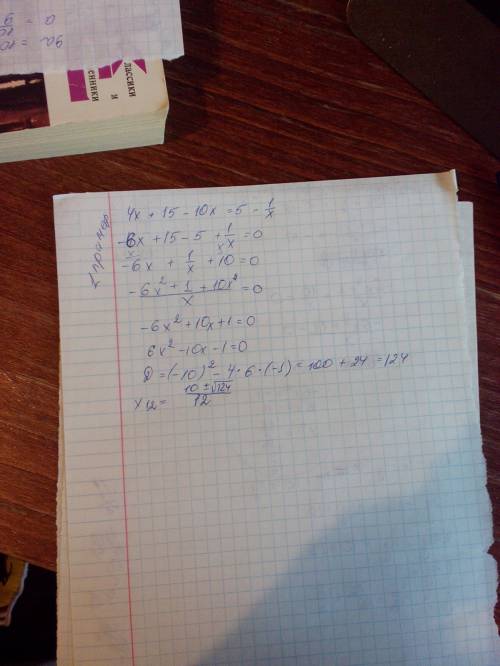 а = 9/10
9а = 10
классики
и
1 пример
4x + 15 - 10x = 5 - 1/x
-6x + 15 - 5 + 1/x = 0
-6x + 1/x + 10 = 0
(-6x² + 1 + 10x²)/x = 0
-6x² + 10x + 1 = 0
6x² - 10x - 1 = 0
D = (-10)² - 4 · 6 · (-1) = 100 + 24 = 124
x₁₂ = (10 ± √124)/12